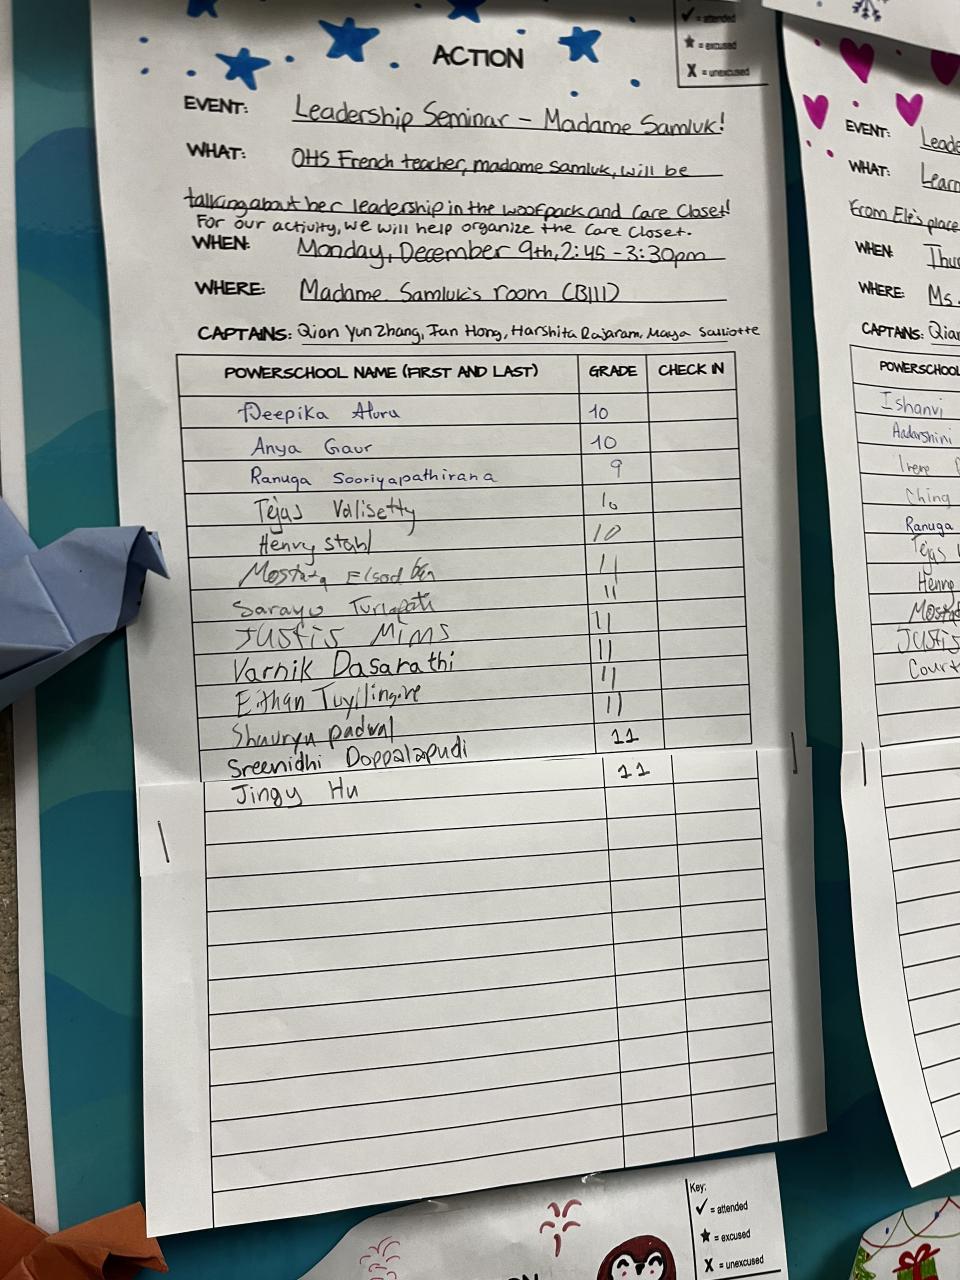 ✓ = attended
★ = excused
X = unexcused
ACTION
EVENT: Leadership Seminar - Madame Samluk!
WHAT: OHS French teacher, madame Samluk, will be
talking about her leadership in the woofpack and Care Closet!
For our activity, we will help organize the Care Closet.
WHEN: Monday, December 9th, 2:45 - 3:30pm
WHERE: Madame Samluk's room (B111)
CAPTAINS: Qian Yun Zhang, Jun Hong, Harshita Rajaram, Maya Salliotte
POWERSCHOOL NAME (FIRST AND LAST) GRADE CHECK IN
Deepika Aluru 10
Anya Gaur 10
Ranuga Sooriyapathirana 9
Tejas Valisetty 10
Henry Stahl 10
11
Sarayu 11
JUSTIS MIMS 11
Varnik Dasarathi 11
11
Shaurya padwal 11
Sreenidhi Doppalapudi 11
Jingy Hu 11
EVENT: Leade
WHAT: Learn
From Ele's place
WHEN: Thu
WHERE: Ms.
CAPTAINS: Qian
POWERSCHOOL
Ishanvi
Aadarshini
Irene
Ching
Ranuga
Tejas
Henry
JUSTIS
Court
Key:
✓ = attended
★ = excused
X = unexcused